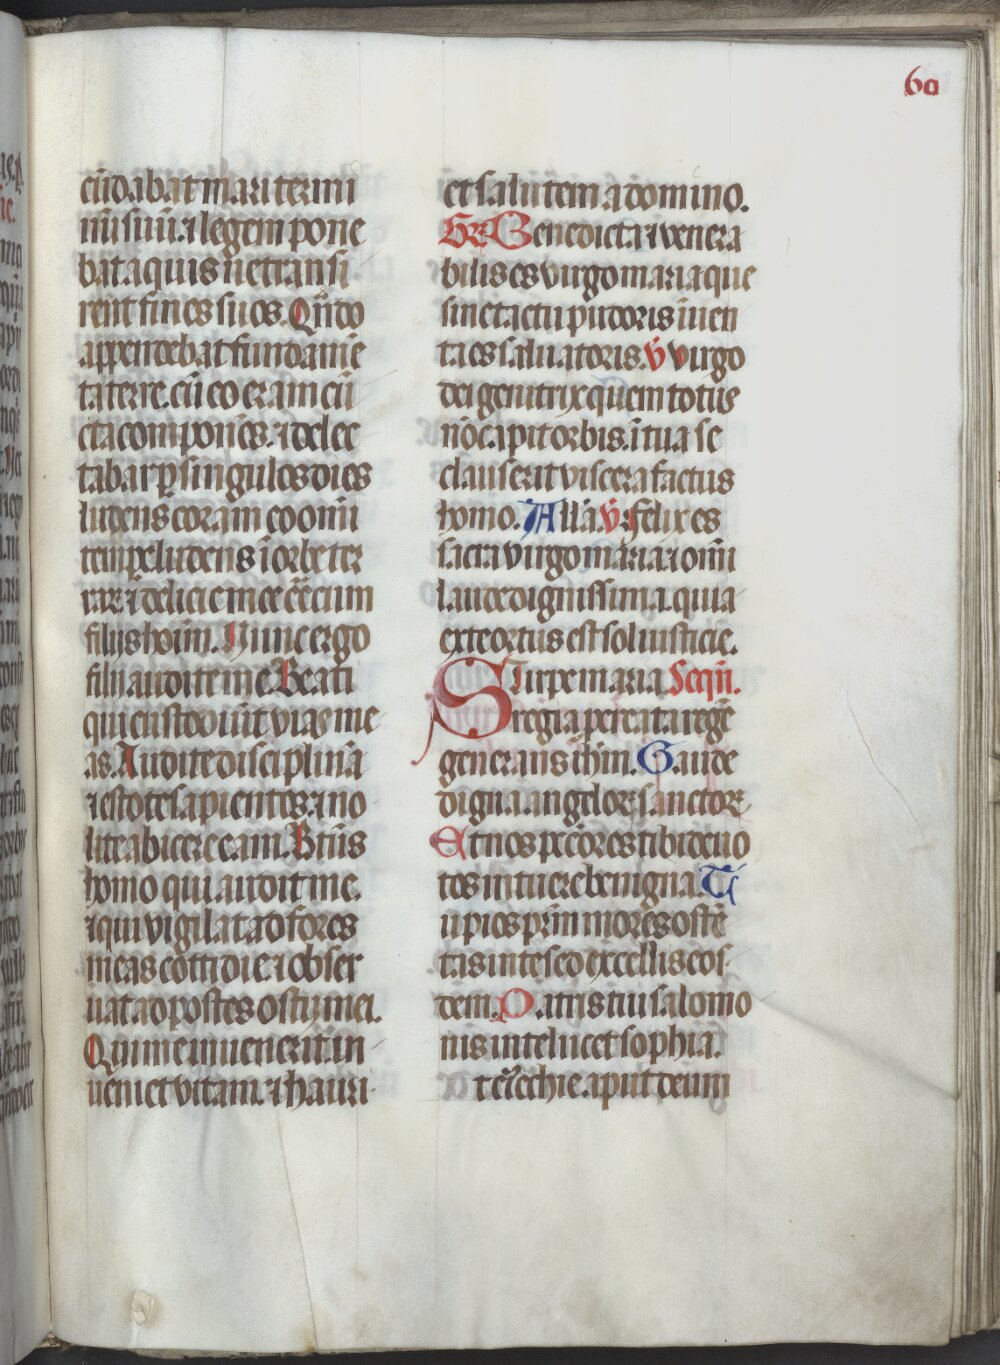 60
cūdabat mari termi
nū suū. ⁊ legem pone
bat aquis ne transi
rent fines suos. Qn̄do
appendebat fundamē
ta terre. cū eo eram cū
cta componēs. ⁊ delec
tabar ꝑ singulos dies
ludens coram eo omī
tempe ludens ī orbe ter
rarꝫ ⁊ delicie mee cē cum
filijs hoīm. Nunc ergo
filij audite me Beati
qui custodiūt vias me
as. Audite disciplinā
⁊ estote sapientes. ⁊ no
lite abicere eam. Btūs
homo qui audit me.
⁊ qui vigilat ad fores
meas cottidie. ⁊ obser
uat ad postes ostij mei.
Qui me inuenerit. in
ueniet vitam. ⁊ hauri
et salutem a domino.
Gr̄ Benedicta ⁊ venera
bilis es virgo maria que
sine tactu pudoris inuen
ta es saluatoris. V̄ virgo
dei genitrix quem totus
nō capit orbis. ī tua se
clauserit viscera factus
homo. All̄a V̄ felix es
sacra virgo maria ⁊ omī
laude dignissima. quia
ex te ortus est sol iusticie.
Stirpe maria Seqn̄.
regia procreata regē
generans ih̄m. Gaude
digna angelorꝫ sanctorꝫ
Et nos pctōres tibi deuo
tos intuere benigna. Tu
u pios prm̄ mores ostē
tas in te sed excellis eos
dem. Patris tui salomo
nis in te lucet sophia.
t ezechie. aput deum